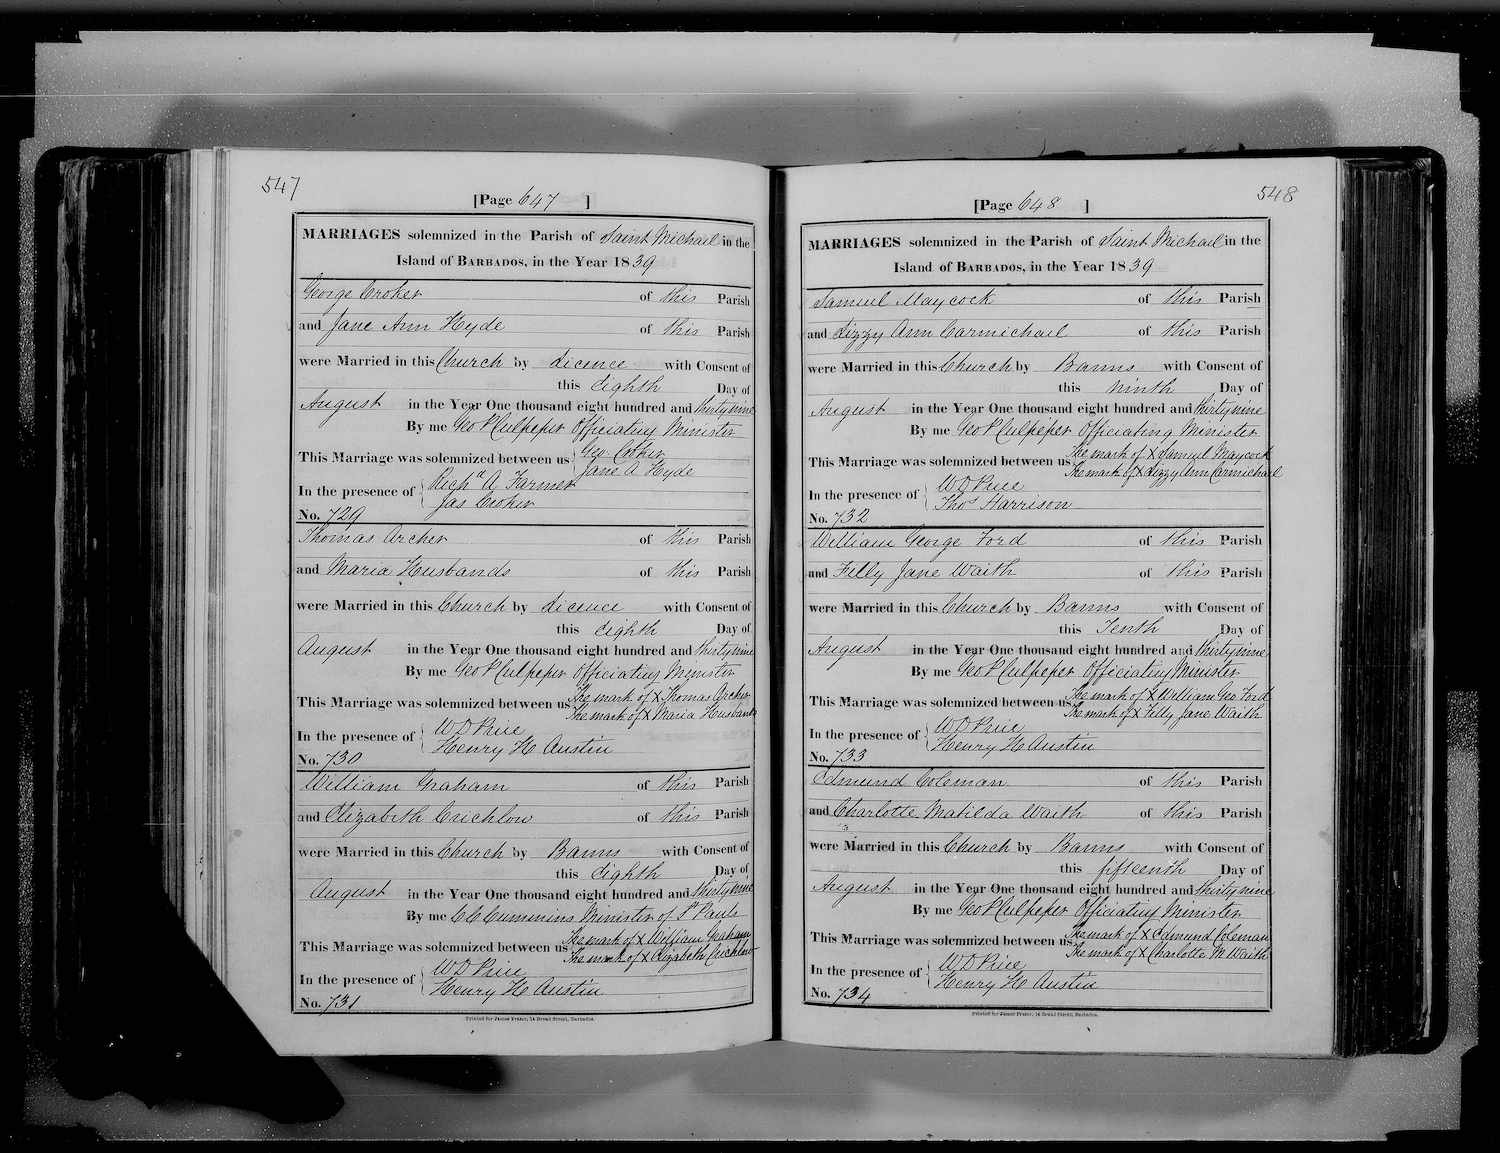 547
[Page 647 ]
MARRIAGES solemnized in the Parish of Saint Michael in the
Island of BARBADOS, in the Year 1839
George Croker of this Parish
and Jane Ann Hyde of this Parish
were Married in this Church by Licence with Consent of
this Eighth Day of
August in the Year One thousand eight hundred and thirty nine
By me Geo P Culpeper Officiating Minister
This Marriage was solemnized between us Geo. Croker
Jane A Hyde
In the presence of Richd A Farmer
Jas Croker
No. 729
Thomas Archer of this Parish
and Maria Husbands of this Parish
were Married in this Church by Licence with Consent of
this Eighth Day of
August in the Year One thousand eight hundred and thirty nine
By me Geo P Culpeper Officiating Minister
This Marriage was solemnized between us The mark of X Thomas Archer
The mark of X Maria Husbands
In the presence of W D Price
Henry H Austin
No. 730
William Graham of this Parish
and Elizabeth Crichlow of this Parish
were Married in this Church by Banns with Consent of
this Eighth Day of
August in the Year One thousand eight hundred and thirty nine
By me C C Cummins Minister of St Pauls
This Marriage was solemnized between us The mark of X William Graham
The mark of X Elizabeth Crichlow
In the presence of W D Price
Henry H Austin
No. 731
Printed for James Fraser, 14 Broad Street, Barbados.
548
[Page 648 ]
MARRIAGES solemnized in the Parish of Saint Michael in the
Island of BARBADOS, in the Year 1839
Samuel Maycock of this Parish
and Lizzy Ann Carmichael of this Parish
were Married in this Church by Banns with Consent of
this ninth Day of
August in the Year One thousand eight hundred and thirty nine
By me Geo P Culpeper Officiating Minister
This Marriage was solemnized between us The mark of X Samuel Maycock
The mark of X Lizzy Ann Carmichael
In the presence of W D Price
Thos Harrison
No. 732
William George Ford of this Parish
and Filly Jane Waith of this Parish
were Married in this Church by Banns with Consent of
this Tenth Day of
August in the Year One thousand eight hundred and thirty nine
By me Geo P Culpeper Officiating Minister
This Marriage was solemnized between us The mark of X William Geo Ford
The mark of X Filly Jane Waith
In the presence of W D Price
Henry H Austin
No. 733
Edmund Coleman of this Parish
and Charlotte Matilda Waith of this Parish
were Married in this Church by Banns with Consent of
this fifteenth Day of
August in the Year One thousand eight hundred and thirty nine
By me Geo P Culpeper Officiating Minister
This Marriage was solemnized between us The mark of X Edmund Coleman
The mark of X Charlotte M Waith
In the presence of W D Price
Henry H Austin
No. 734
Printed for James Fraser, 14 Broad Street, Barbados.